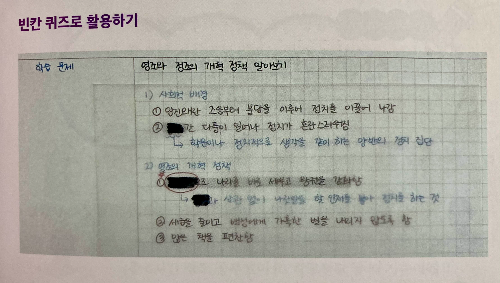 빈칸 퀴즈로 활용하기
학습 문제
영조와 정조의 개혁 정책 알아보기
1) 사회적 배경
① 임진왜란 조승부터 붕당을 이루어 정치를 이끌어 나감
② 간 다툼이 일어나 정치가 혼란스러워짐
↳ 학문이나 정치적으로 생각을 같이 하는 양반의 정치 집단
2) 영조의 개혁 정책
① 나라를 바로 세우고 왕권을 강화함
↳ 상관 없이 나랏일을 할 인재를 뽑아 정치를 하는 것
② 세금을 줄이고 백성에게 가혹한 벌을 내리지 않도록 함
③ 많은 책을 편찬함